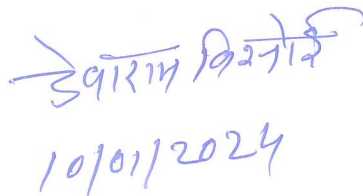 डेवाराम विश्नोई
10/01/2024